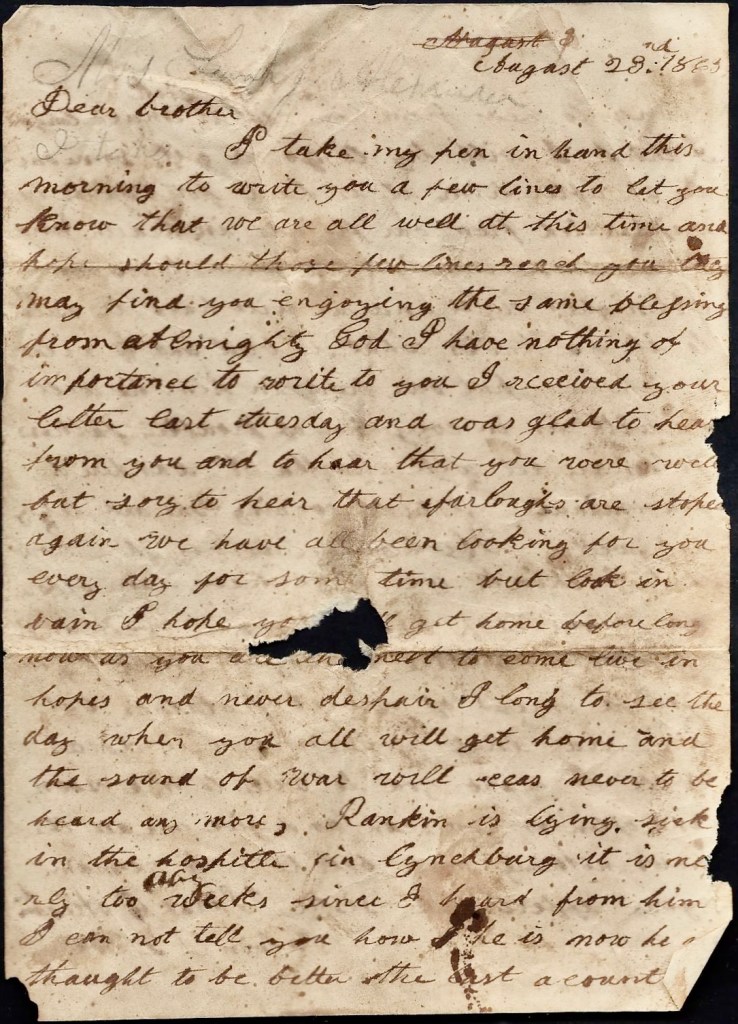 August
August 23.nd 1863
Dear brother
I take my pen in hand this
morning to write you a few lines to let you
know that we are all well at this time and
hope should those few lines reach you they
may find you engoying the same blessing
from atlmighty God I have nothing of
importance to write to you I received your
letter last tuesday and was glad to hear
from you and to haar that you were well
but sory to hear that farloughs are stoped
again we have all been looking for you
every day for some time but look in
vain I hope get home before long
now as you are the next to come live in
hopes and never despair I long to see the
day when you all will get home and
the sound of war will ceas never to be
heard any more, Rankin is lying sick
in the hospitle in Lynchburg it is ne
rly too weeks since I heard from him
I can not tell you how he is now he
thought to be better the last acount